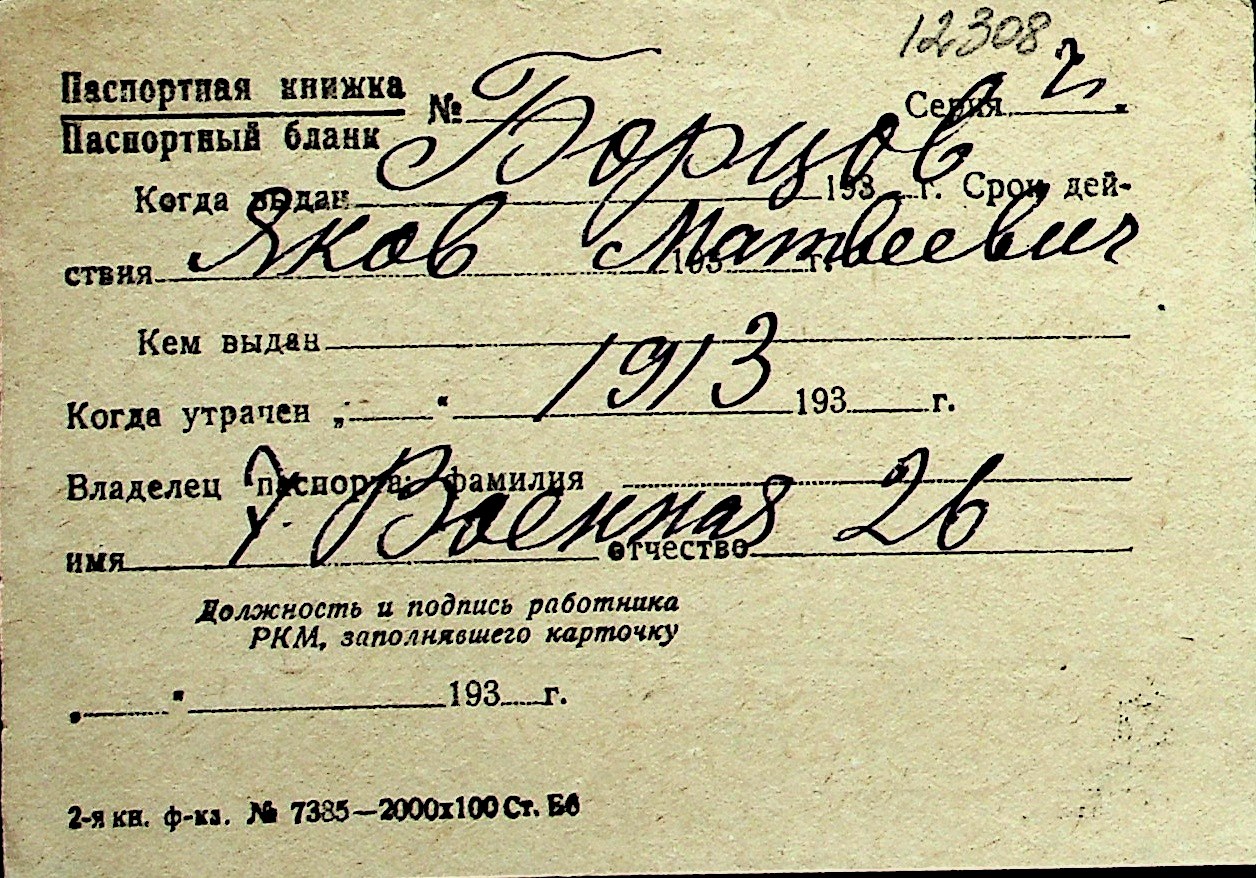 12308
Паспортная книжка
Паспортный бланк № Серия
Борцов
Когда выдан 193 г. Срок дей-
ствия 193 г.
Яков Матвеевич
Кем выдан
1913
Когда утрачен „ “ 193 г.
Владелец паспорта: фамилия
Военная 26
имя отчество
Должность и подпись работника
РКМ, заполнявшего карточку
„ “ 193 г.
2-я кн. ф-ка. № 7385—2000х100 Ст. Бб